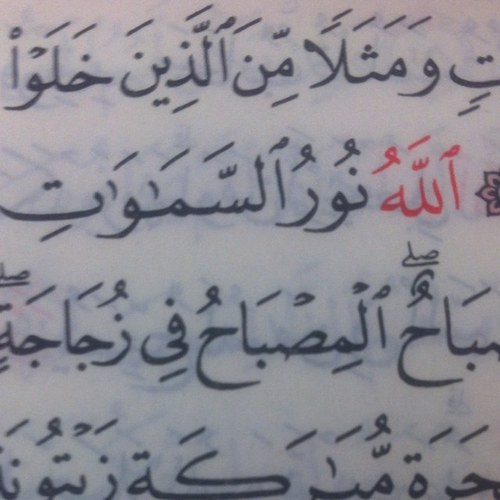 تٍ وَمَثَلًا مِّنَ ٱلَّذِينَ خَلَوْا۟
ٱللَّهُ نُورُ ٱلسَّمَـٰوَٰتِ
صْبَاحٌ ۖ ٱلْمِصْبَاحُ فِى زُجَاجَةٍ ۖ
جَرَةٍ مُّبَـٰرَكَةٍ زَيْتُونَةٍ